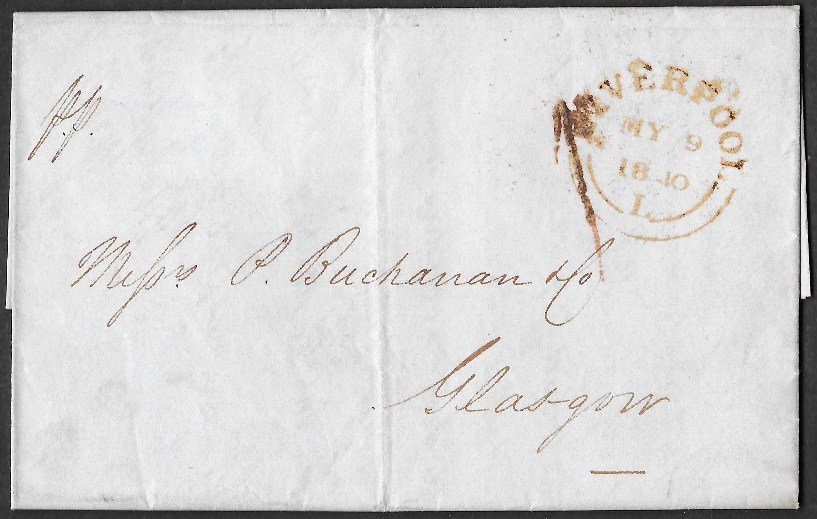 p.p.
LIVERPOOL
MY 9
1840
L
1
Messrs P. Buchanan & Co
Glasgow